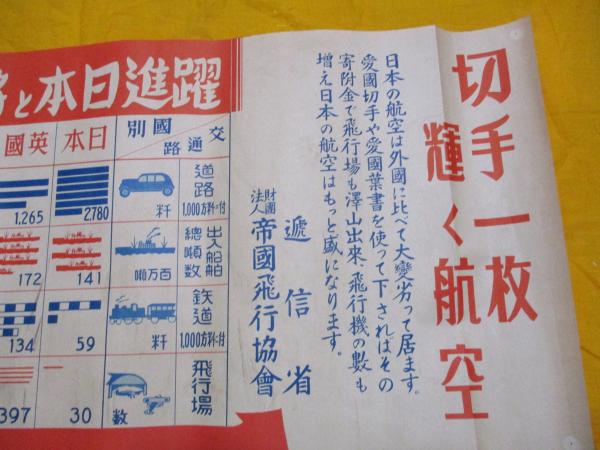 切手一枚
輝く航空
日本の航空は外國に比べて大變劣って居ます。
愛國切手や愛國葉書を使って下さればその
寄附金で飛行場も澤山出來、飛行機の數も
増え日本の航空はもっと盛になります。
遞信省
財團法人 帝國飛行協會
躍進日本と
國別 交通路 日本 英國
道路 1,000方粁ニ付 粁 2,780 1,265
出入船舶總噸數 百万噸 141 172
鉄道 1,000方粁ニ付 粁 59 134
飛行場 數 30 397